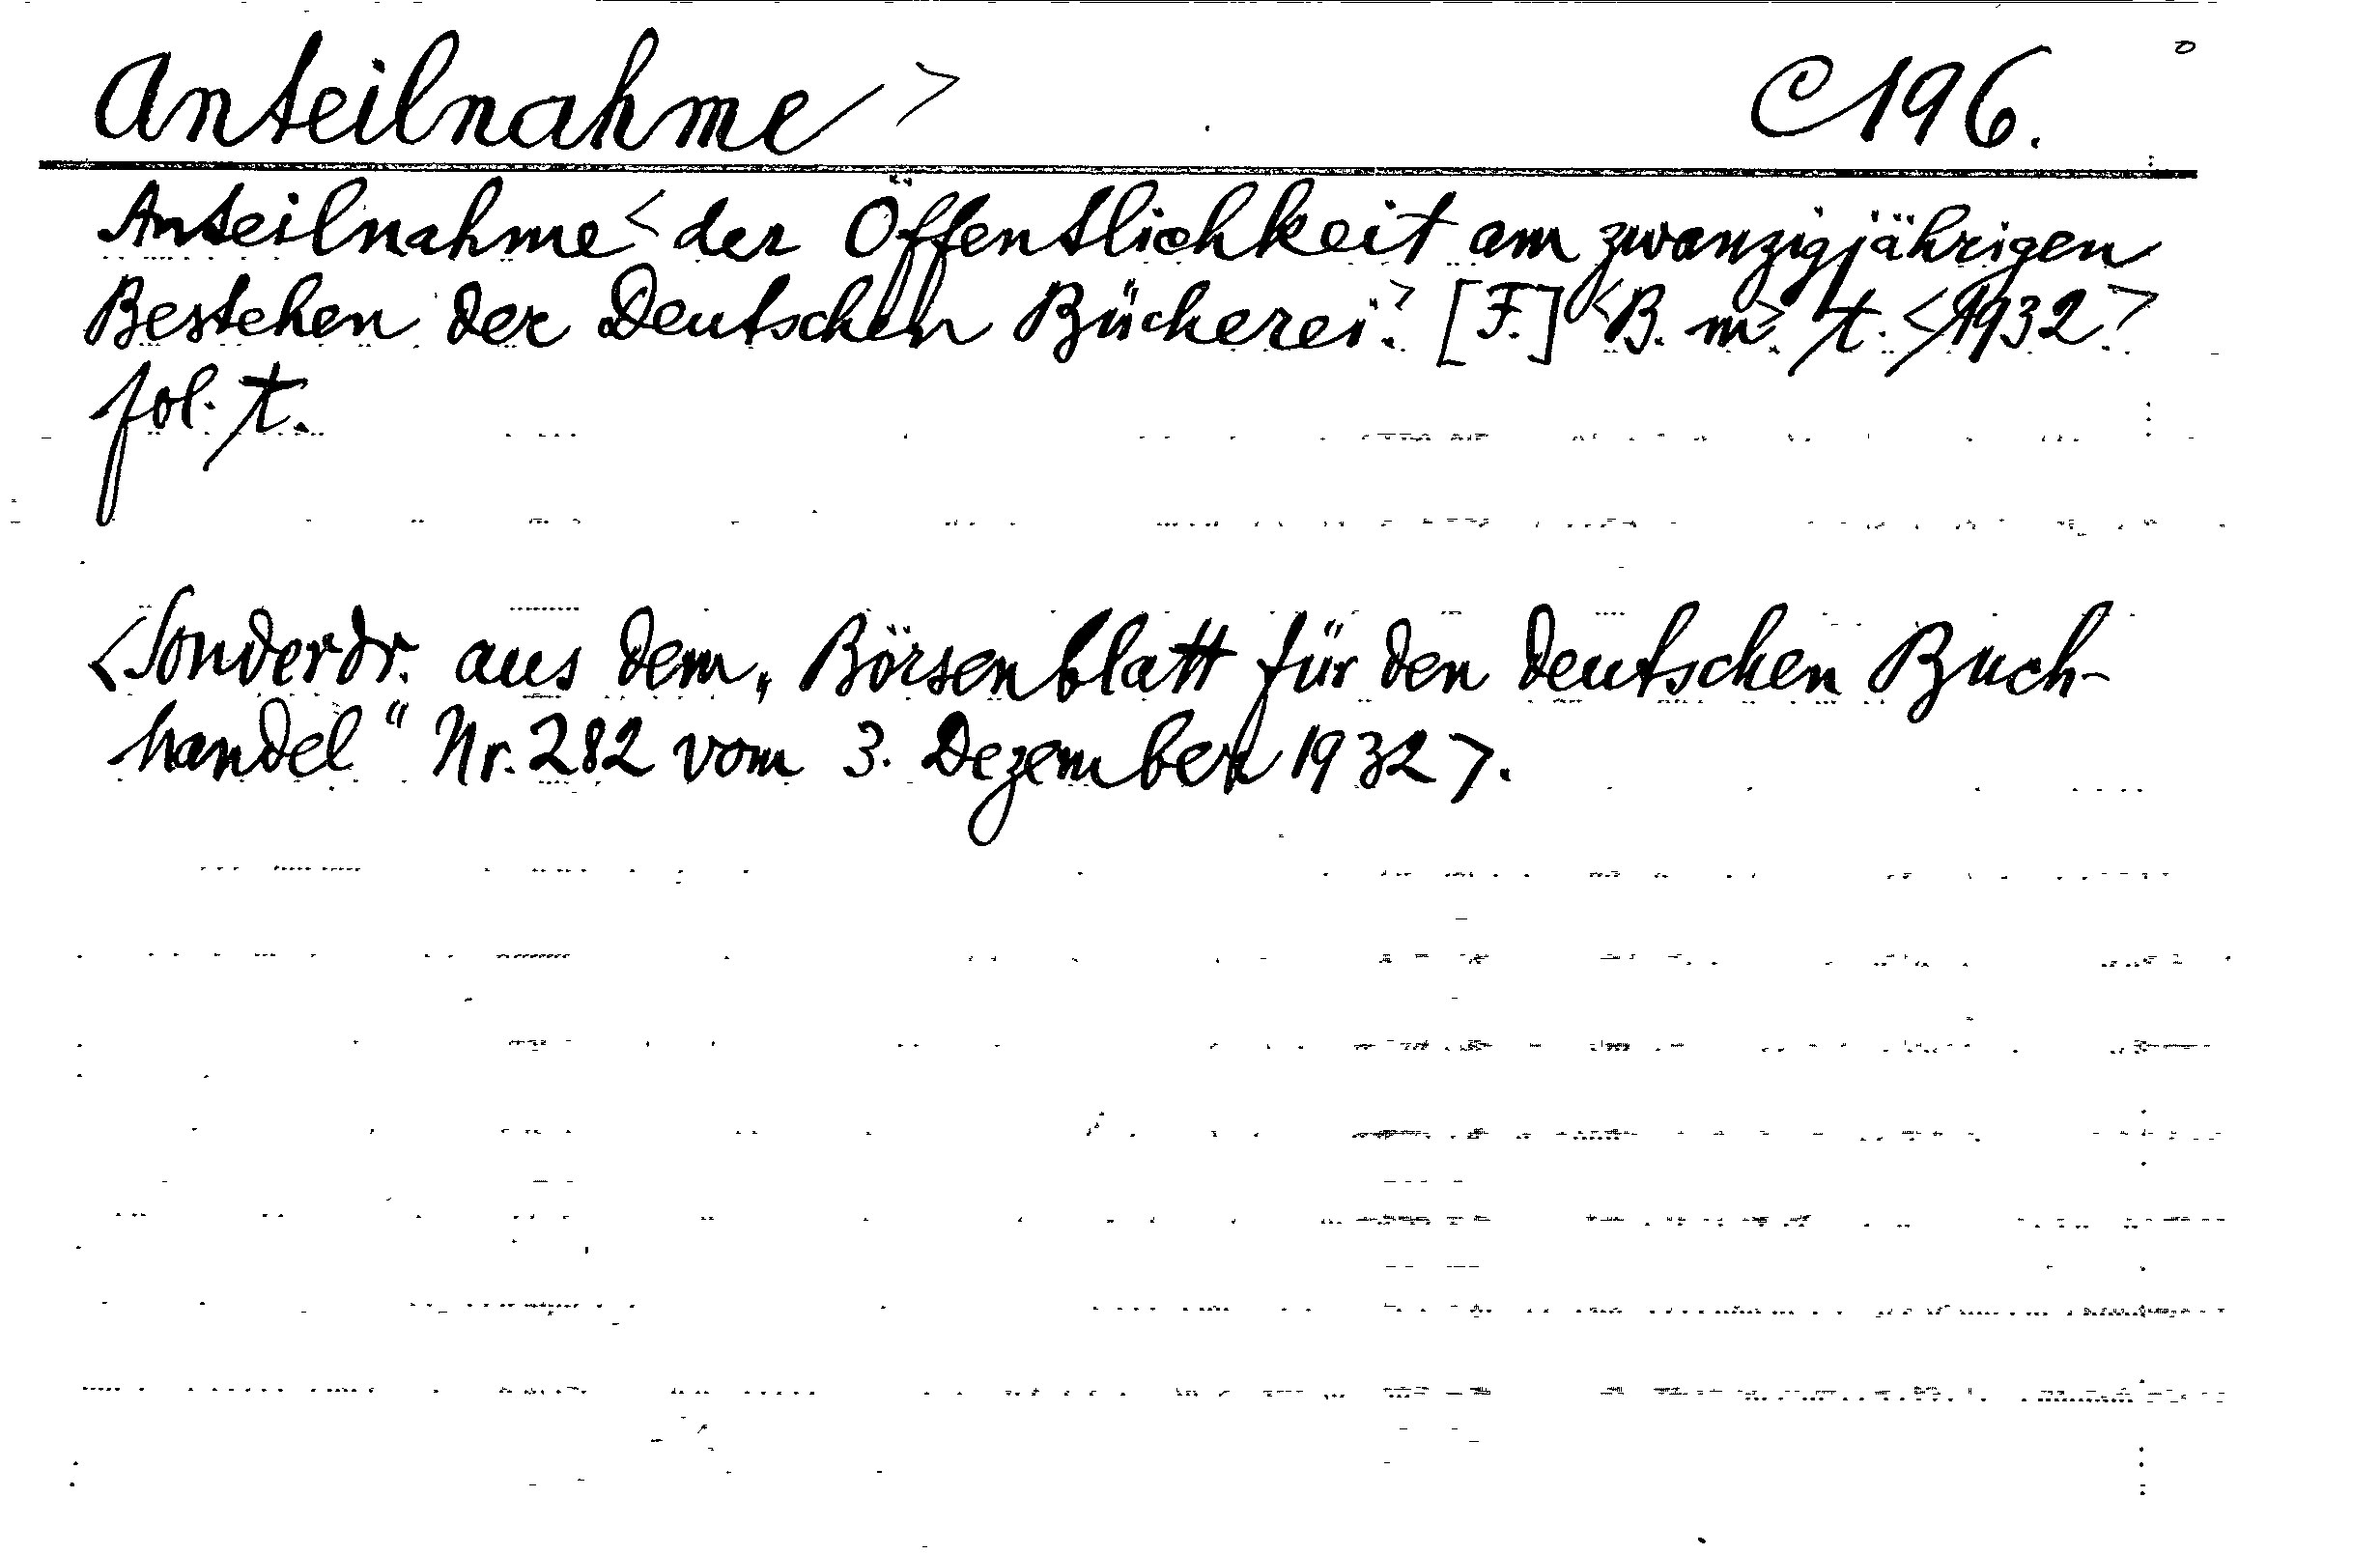 Anteilnahme > C 196.
Anteilnahme < der Öffentlichkeit am zwanzigjährigen
Bestehen der Deutschen Bücherei. > [F.] <B. m.> t. <1932>
fol. t.
<Sonderdr. aus dem „Börsenblatt für den deutschen Buch-
handel“ Nr. 282 vom 3. Dezember 1932>.